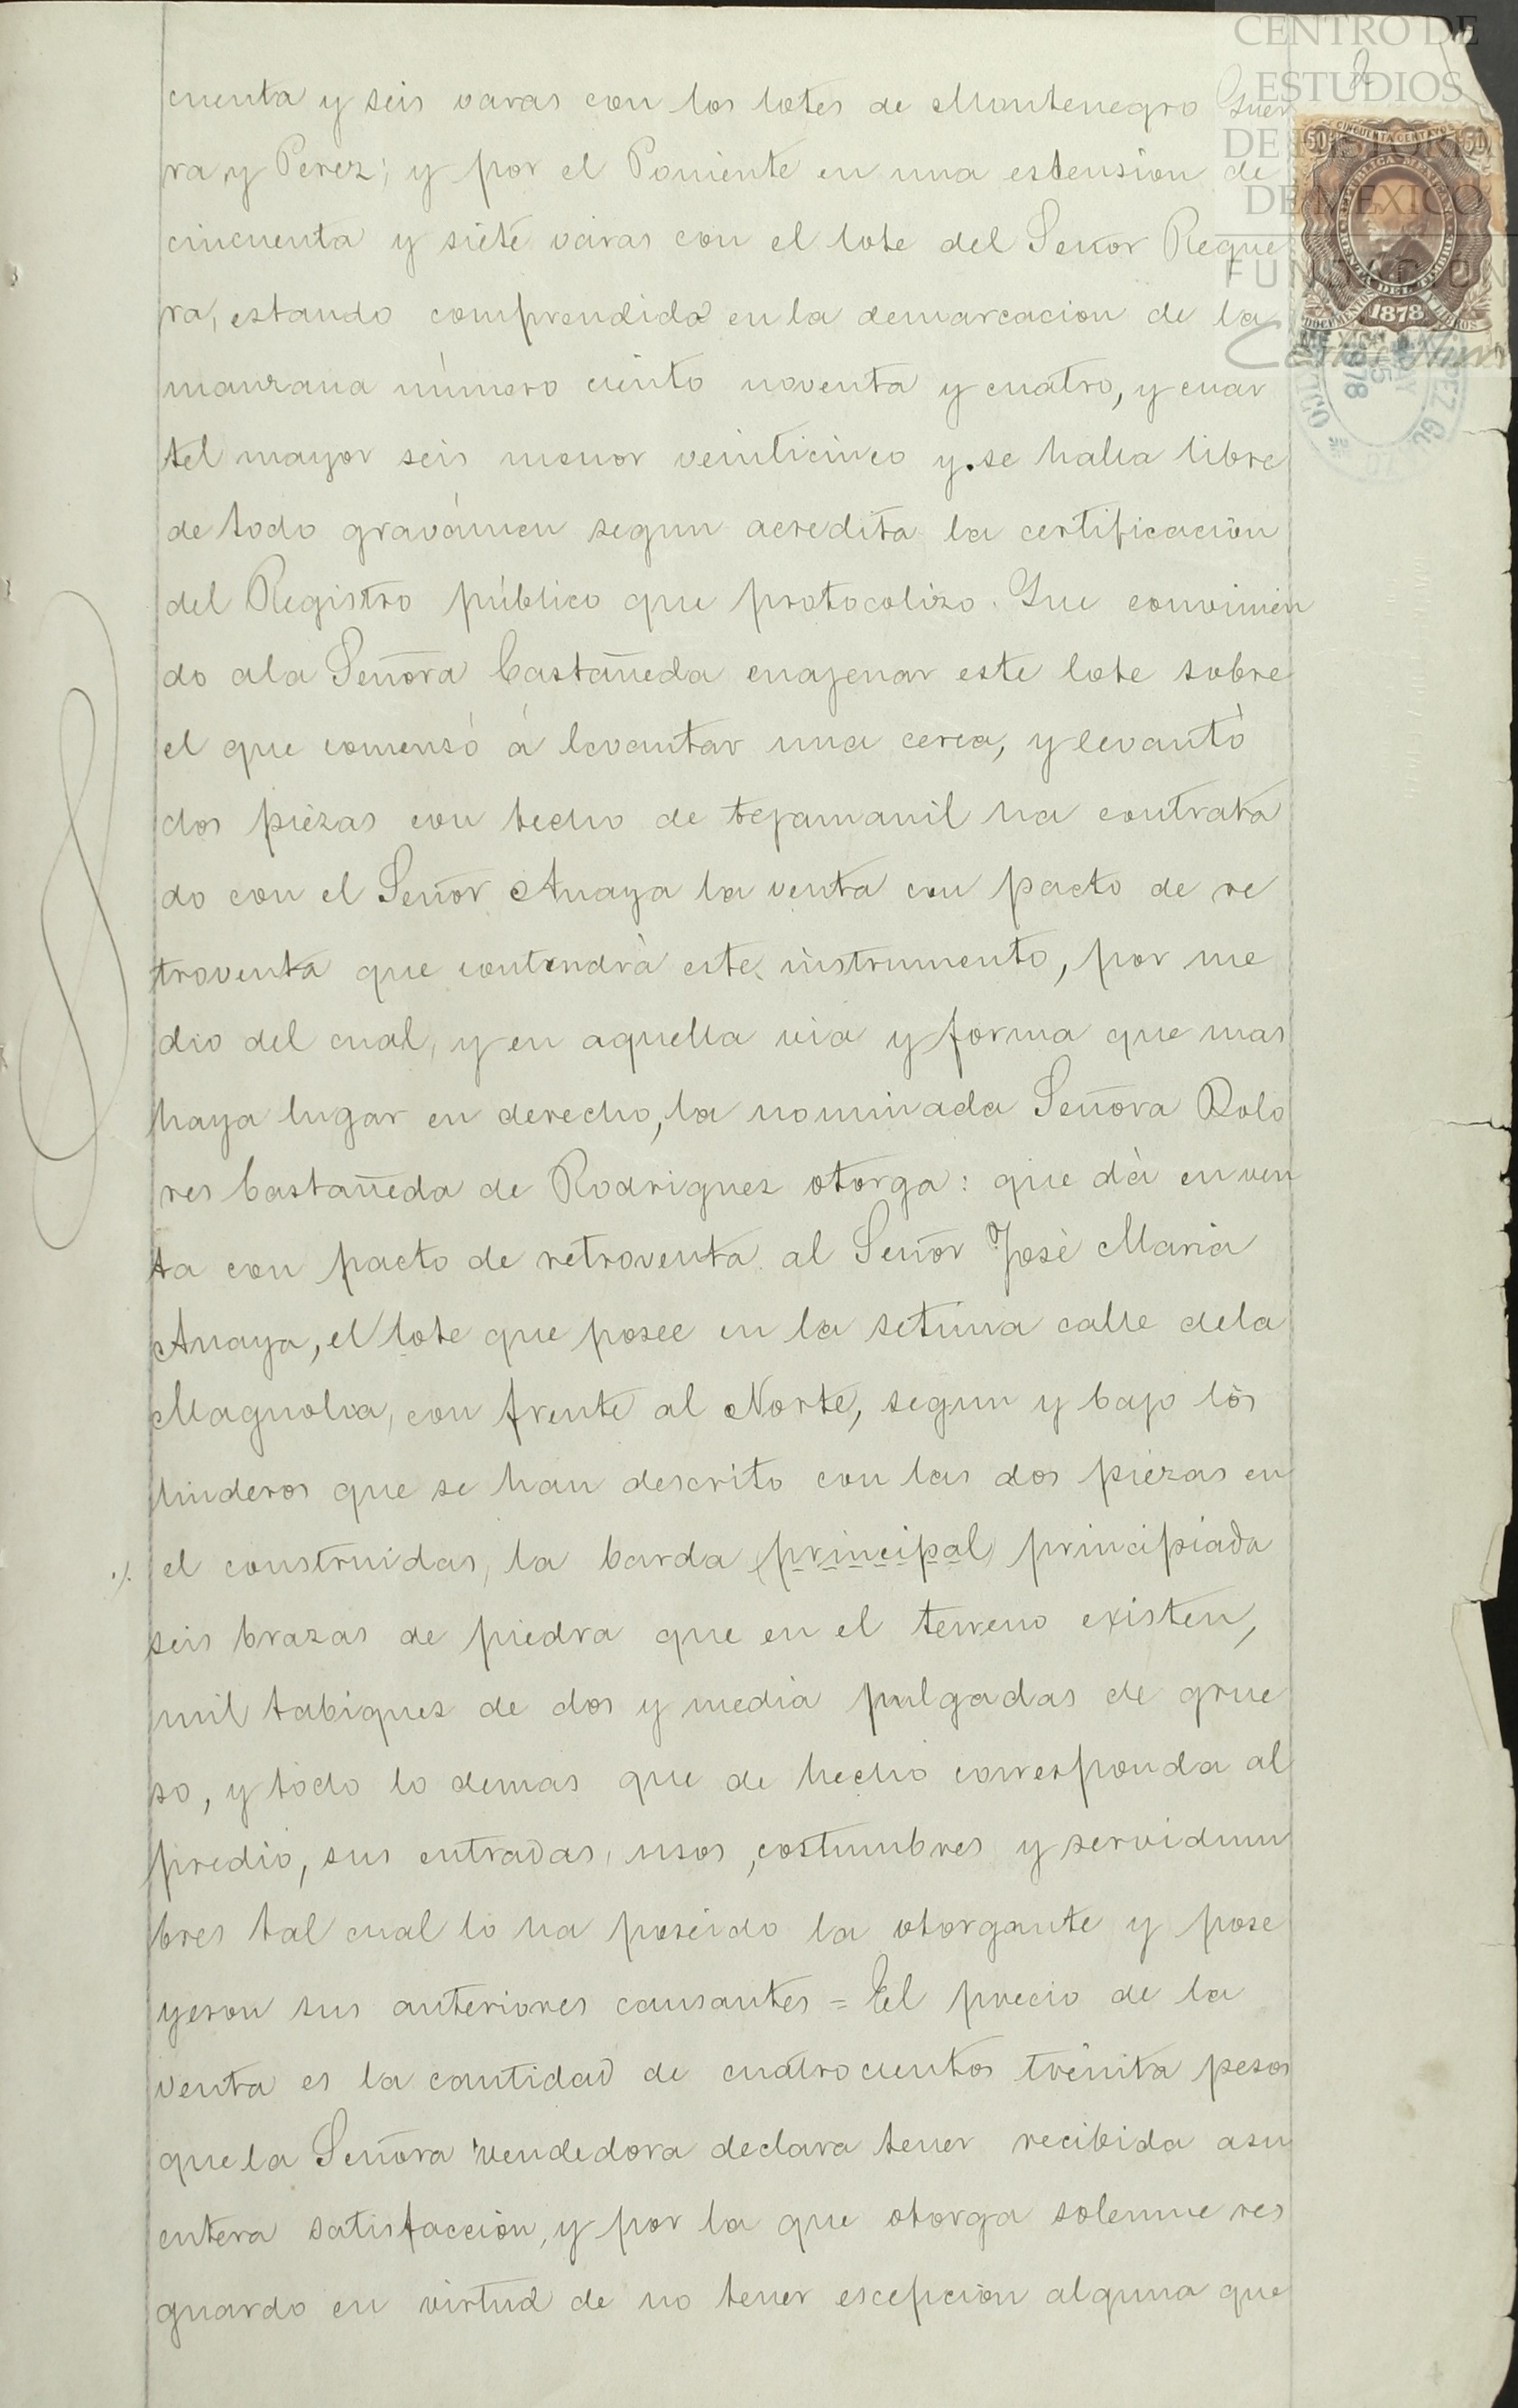 CENTRO DE
ESTUDIOS
DE HISTORIA
DE MEXICO
FUNDACION
2
CINCUENTA CENTAVOS
50 50
REPUBLICA MEXICANA
RENTA DEL TIMBRE
DOCUMENTOS Y LIBROS
1878
cuenta y seis varas con los lotes de Montenegro Guer
ra, y Perez; y por el Poniente en una estension de
cincuenta y siete varas con el lote del Señor Regue
ra, estando comprendido en la demarcacion de la
manzana número ciento noventa y cuatro, y cuar
tel mayor seis menor veinticinco y se halla libre
de todo gravámen segun acredita la certificacion
del Registro público que protocolizo. Que convinien
do ala Señora Castañeda enajenar este lote sobre
el que comensó á levantar una cerca, y levantó
dos piezas con techo de tejamanil ha contrata
do con el Señor Anaya la venta con pacto de re
troventa que contendrà este instrumento, por me
dio del cual, y en aquella via y forma que mas
haya lugar en derecho, la nominada Señora Dolo
res Castañeda de Rodriguez otorga: que dà en ven
ta con pacto de retroventa al Señor Josè Maria
Anaya, el lote que posee en la setima calle dela
Magnolia, con frente al Norte, segun y bajo los
linderos que se han descrito con las dos piezas en
./. el construidas, la barda (principal) principiada
seis brazas de piedra que en el terreno existen,
mil tabiques de dos y media pulgadas de grue
so, y todo lo demas que de hecho corresponda al
predio, sus entradas, usos, costumbres y servidum
bres tal cual lo ha poseido la otorgante y pose
yeron sus anteriores causantes = El precio de la
venta es la cantidad de cuatrocientos treinta pesos
que la Señora vendedora declara tener recibida asu
entera satisfaccion, y por la que otorga solemne res
guardo en virtud de no tener escepcion alguna que